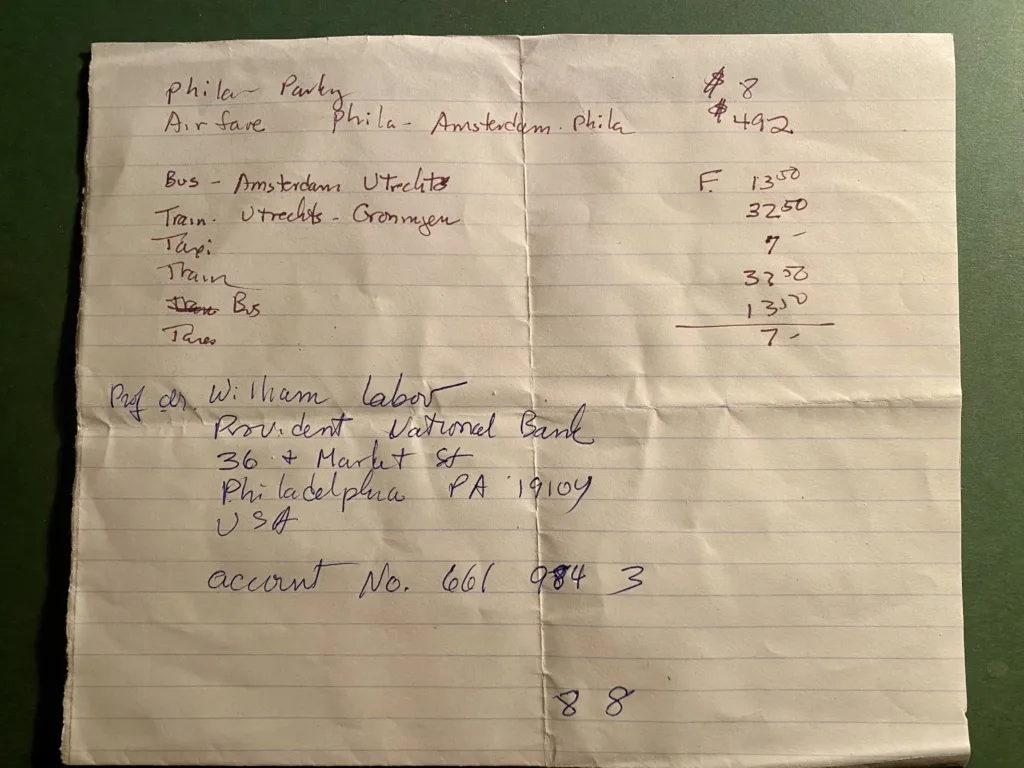 Phila- Parky $ 8
Airfare Phila- Amsterdam. Phila $492
Bus - Amsterdam Utrechts F. 13.50
Train. Utrechts - Groningen 32.50
Taxi 7 -
Train 32.50
Bus 13.50
7 -
Prof dr. William Labov
Provident National Bank
36 + Market St
Philadelphia PA 19104
USA
account No. 661 984 3
8 8